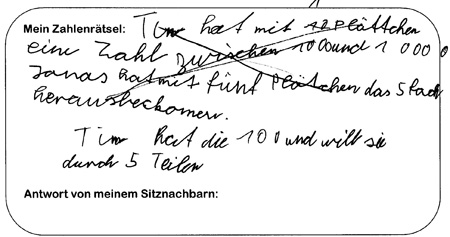 Mein Zahlenrätsel: Tim hat mit 12 Plättchen
eine Zahl zwischen 100und 1 000 0
Jonas hat mit fünf Plätchen das 5 fach
herausbeckomen.
Tim hat die 100 und will sie
durch 5 Teilen
Antwort von meinem Sitznachbarn: